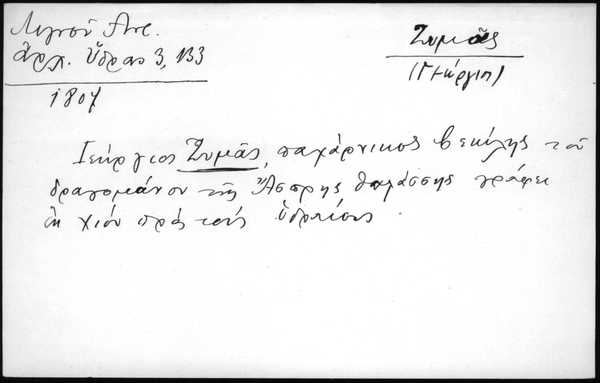 Λιγνοῦ Αντ.
ἀρχ. Ὕδρας 3, 133
1807
Ζυμᾶς
(Γεώργιος)
Γεώργιος Ζυμᾶς, παχάρνικος βεκίλης τοῦ
δραγομάνου τῆς Ἄσπρης θαλάσσης γράφει
ἐκ Χίου πρὸς τοὺς Ὑδραίους.